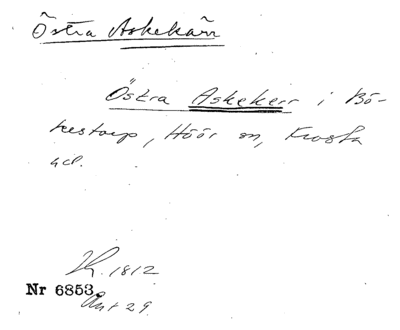 Östra Askekärr
Östra Askekerr i Bö-
kestorp, Höör sn, Frosta
hd.
Kr. 1812
Nr 6853
Akt 29